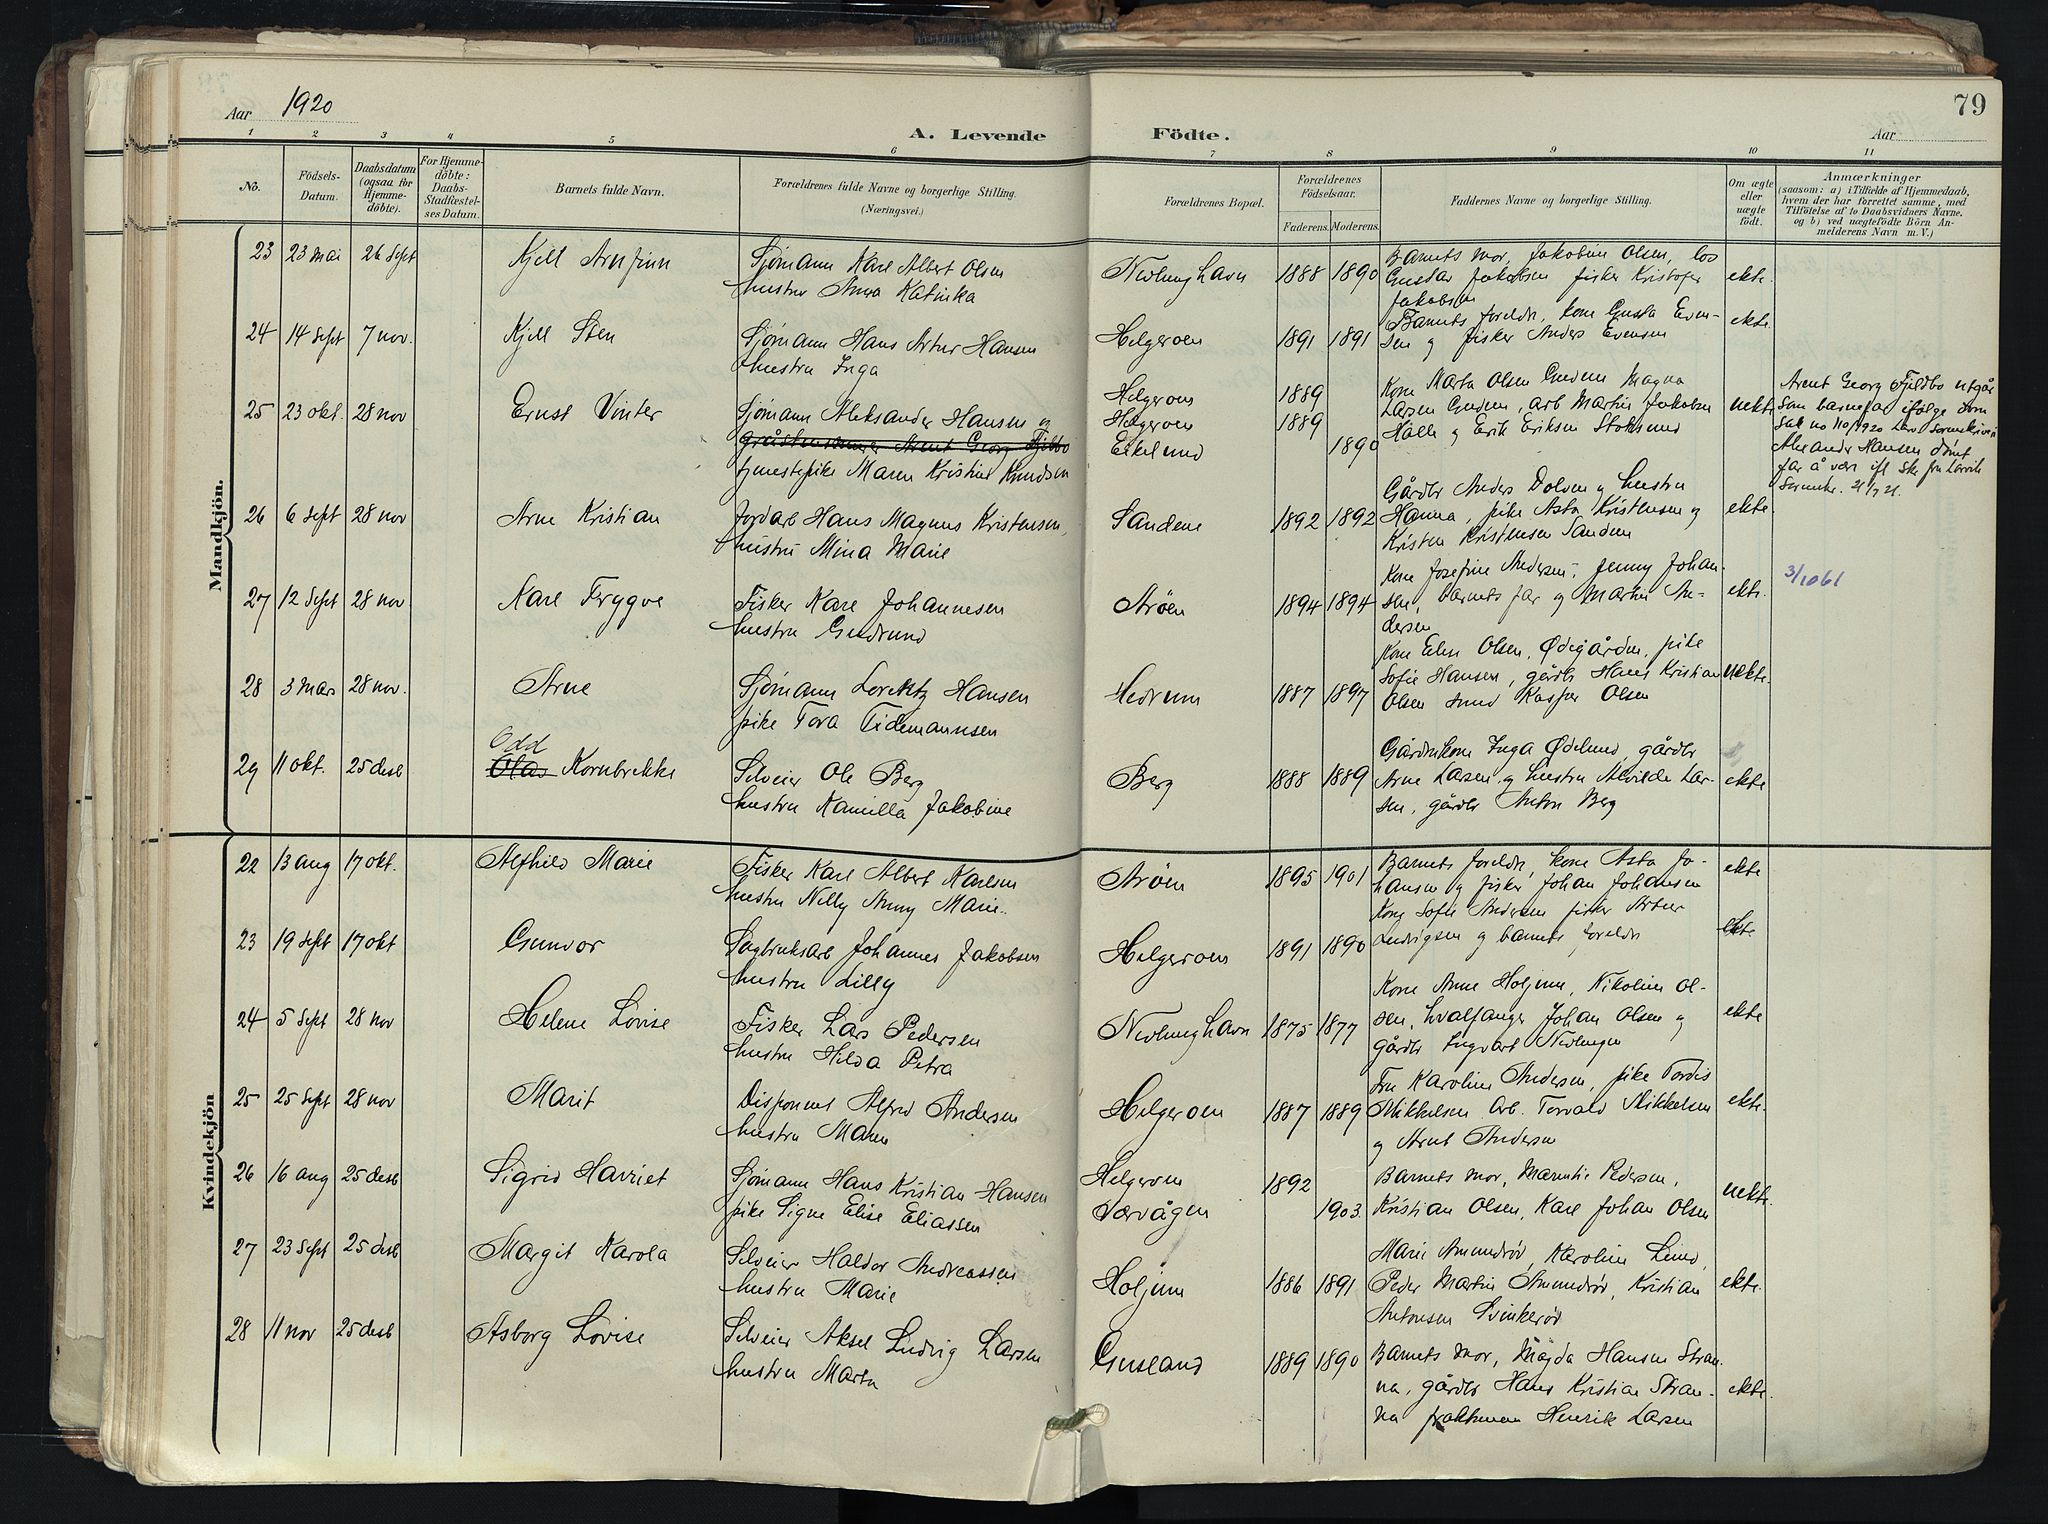 79
Aar 1920
Aar
A. Levende Födte.
1 2 3 4 5 6 7 8 9 10 11
No.
Födsels-
Datum.
Daabsdatum
(ogsaa for
Hjemme-
döbte).
For Hjemme-
döbte:
Daabs-
Stadfæstel-
ses Datum.
Barnets fulde Navn.
Forældrenes fulde Navne og borgerlige Stilling.
(Næringsvei.)
Forældrenes Bopæl.
Forældrenes
Födselsaar.
Faderens. Moderens.
Faddernes Navne og borgerlige Stilling.
Om ægte
eller
uægte
födt.
Anmærkninger
(saasom: a) i Tilfælde af Hjemmedaab,
hvem der har forrettet samme, med
Tilföielse af to Daabsvidners Navne.
og b) ved uægtefödte Börn An-
melderens Navn m. V.)
Mandkjön.
23 23 mai 26 sept Kjell Arnfinn
Sjømann Karl Albert Olsen
hustru Anna Katinka
Nevlunghavn 1888 1890
Barnets mor, Jakobine Olsen, los
Gustav Jakobsen fisker Kristofer
Jakobsen
ekte.
24 14 sept 7 nov. Kjell Sten
Sjømann Hans Artur Hansen
hustru Inga
Helgeroen 1891 1891
Barnets foreldr, kone Gusta Even-
sen og fisker Anders Evensen
ekte.
25 23 okt. 28 nov Ernst Vinter
Sjømann Aleksander Hansen og
Arent Georg Fjeldbo
tjenestepike Maren Kristine Knudsen
Helgeroen 1889
Helgeroen 1889
Eikelund 1890
Kone Marta Olsen Gudem Magna
Larsen Gudem, arb Martin Jakobsen
Hølle og Erik Eriksen Stoksund
uekte
Arent Georg Fjeldbo utgår
som barnefar ifølge dom
sak no 110/1920 Larv Sorenskriveri
Alexander Hansen dømt
far å være ifl skr fra Larvik
Sorenskr. 21/7 21.
26 6 sept 28 nov Arne Kristian
Jordarb Hans Magnus Kristensen,
hustru Mina Marie
Sandene 1892 1892
Gårdbr Anders Dolven og hustru
Hanna, pike Asta Kristensen og
Kristen Kristensen Sanden
ekte.
27 12 sept 28 nov Kare Trygve
Fisker Kare Johannesen
hustru Gudrund
Arøen 1894 1894
Kone Josefine Andersen, Jenny Johan-
sen, barnets far og Martin An-
dersen
ekte.
3/10 61
28 3 mars 28 nov. Arne
Sjømann Lorentz Hansen
pike Tora Tidemannsen
Hedrum 1887 1897
Kone Elise Olsen, Ødegården, pike
Sofie Hansen, gårdb Hans Kristian
Olsen smed Kaspar Olsen
uekte.
29 11 okt. 25 desb Odd
Olav Kornbrekke
Selveier Ole Berg
hustru Kamilla Jakobine
Berg 1888 1889
Gårdmkone Inga Ødelund, gårdbr
Arne Larsen og hustru Alvilde Lar-
sen, gårdbr Anton Berg
ekte
Kvindekjön
22 13 aug 17 okt. Alfhild Marie
Fisker Karl Albert Karlsen
hustru Nelly Anny Marie.
Arøen 1895 1901
Barnets foreldr, kone Asta Jo-
hansen og fisker Johan Johansen
ekte
23 19 sept 17 okt Gunvor
Sagbruksarb Johannes Jakobsen
hustru Lilly
Helgeroen 1891 1890
Kone Sofie Andersen fisker Artur
Ludvigsen og barnets foreldr
ekte
24 5 sept 28 nov Helene Lovise
Fisker Lars Pedersen
hustru Hilda Petra
Nevlunghavn 1875 1877
Kone Anne Holjem, Nikoline Ol-
sen, hvalfanger Johan Olsen og
gårdbr Ingvart Nevlungen
ekte
25 25 sept 28 nov Marit
Disponent Alfred Andersen
hustru Maren
Helgeroen 1887 1889
Fru Karoline Andersen, pike Tordis
Mikkelsen Arb. Torvald Mikkelsen
og Arnt Andersen
ekte.
26 16 aug 25 desb Sigrid Harriet
Sjømann Hans Kristian Hansen
pike Signe Elise Eliassen
Helgeroen 1892
Nærvågen 1903.
Barnets mor, Marentie Pedersen,
Kristian Olsen, Karl Johan Olsen
uekte.
27 23 sept 25 desb Margit Karola
Selveier Haldor Andreassen
hustru Marie
Holjem 1886 1891
Marie Amundrød, Karoline Lund,
Peder Martin Amundrød, Kristian
Antonsen Svinkerød
ekte.
28 11 nov 25 desb Asborg Lovise
Selveier Aksel Ludvig Larsen
hustru Marta
Gusland 1889 1890
Barnets mor, Magda Hansen Stran-
na, gårdbr Hans Kristian Stran-
na Henrik Larsen
ekte.